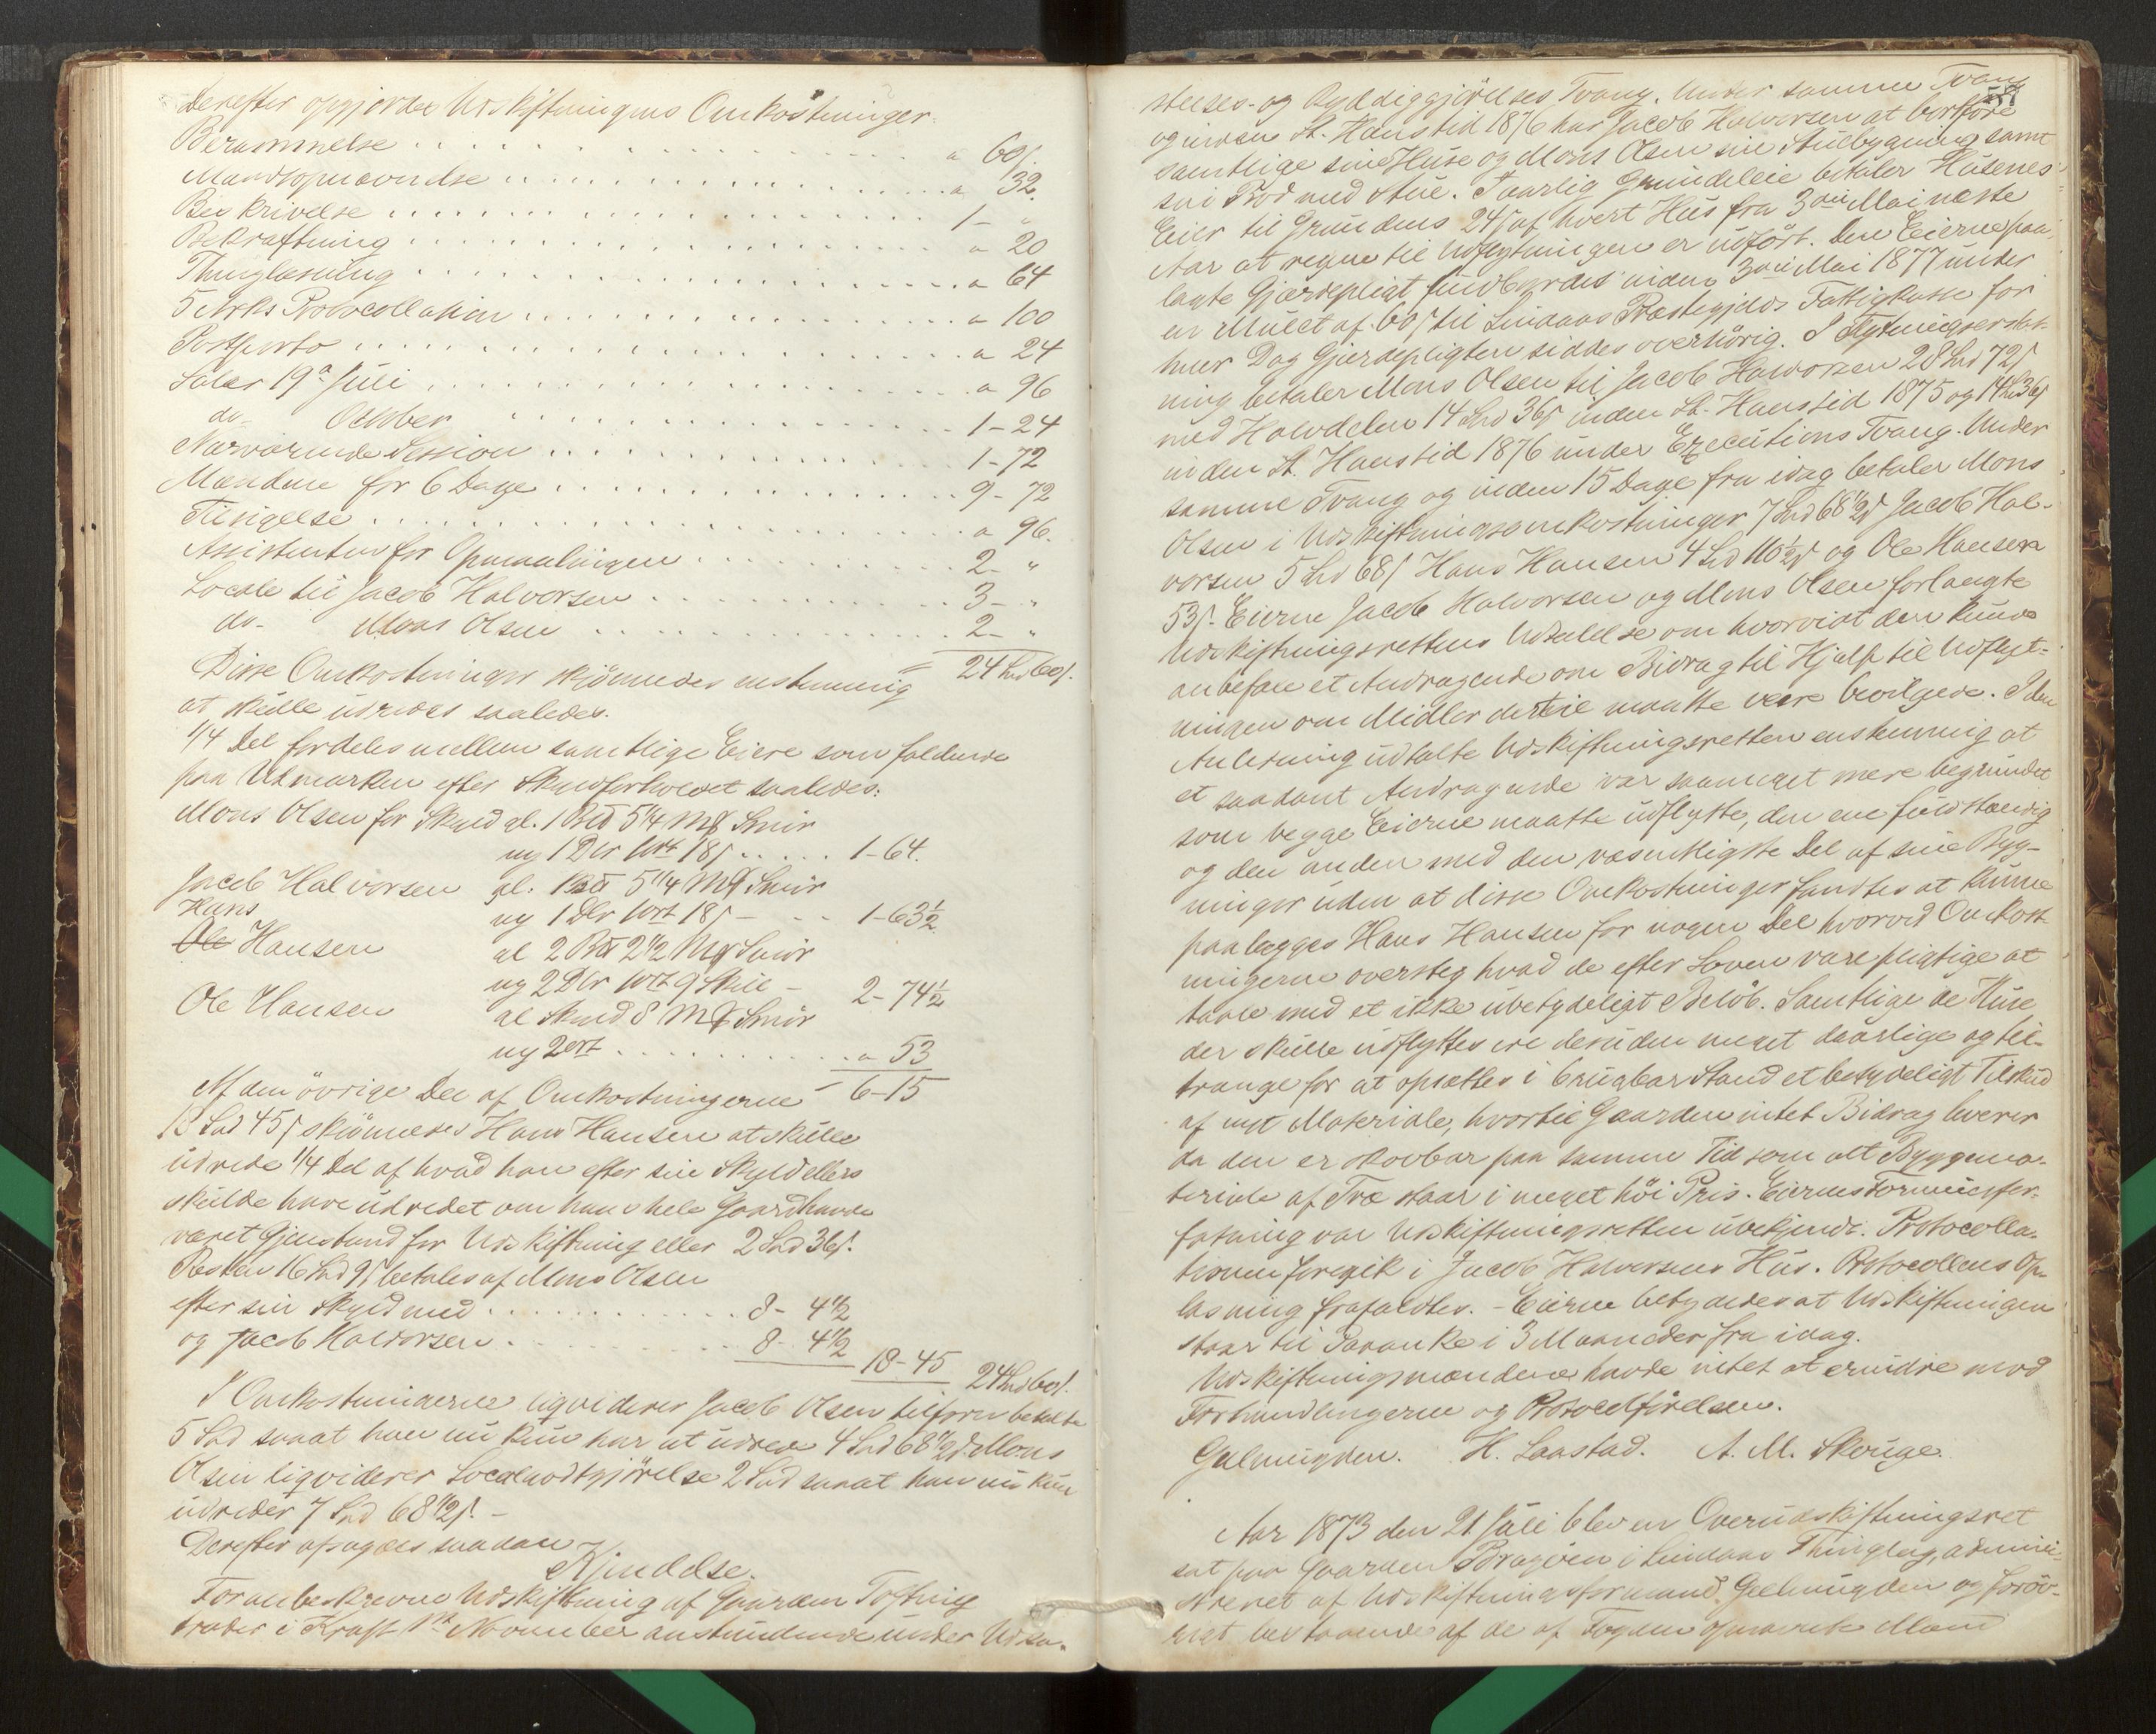 Derefter opgjordes Udskiftningens Omkostninger:
Berammelse . . . . " 60 s.
Mandsopnævnelse . . . . " 32.
Beskrivelse . . . . 1- "
Bekræftning . . . . " 20
Thinglæsning . . . . " 64
5 Arks Protocollation . . . . " 100
Postporto . . . . " 24
Salær 19de Juli . . . . " 96
do- October . . . . 1-24
Nærværende Session . . . . 1-72
Mændene for 6 Dage . . . . 9-72
Tilsigelse . . . . " 96.
Assistenten for Opmaalingen . . . . 2- "
Locale til Jacob Halvorsen . . . . 3- "
do- Mons Olsen . . . . 2- "
= 24 Spd 60 s.
Disse Omkostninger skjönnedes enstemmig
at skulle udredes saaledes.
1/4 Del fordeles mellem samtlige Eiere som faldende
paa Udmarken efter Skyldforholdet saaledes:
Mons Olsen for Skyld gl. 1 Bpd 5 1/4 Mk Smör
ny 1 Dlr 1 Ort 18 s . . . . 1-64.
Jacob Halvorsen gl. 1 Bpd 5 1/4 Mk Smör
ny 1 Dlr 1 Ort 18 s - . . 1-63 1/2
Hans
Ole Hansen gl 2 Bpd 2 1/2 Mk Smör
ny 2 Dlr 1 Ort 9 Skill - 2-74 1/2
Ole Hansen gl Skyld 8 Mk Smör
ny 2 Ort . . . . " 53
6-15
Af den övrige Del af Omkostningerne
18 Spd 45 s skjönnedes Hans Hansen at skulle
udrede 1/4 Del af hvad han efter sin Skyld ellers
skulde have udredet om hans hele Gaard havde
været Gjenstand for Udskiftning eller 2 Spd 36 s.
Resten 16 Spd 9 s betales af Mons Olsen
efter sin Skyld med . . . . 8- 4 1/2
og Jacob Halvorsen . . . . 8- 4 1/2
18-45 24 Spd 60 s.
I Omkostningerne liqviderer Jacob Olsen tilforn betalte
5 Spd saaat han nu kun har at udrede 4 Spd 68 1/2 s Mons
Olsen liqviderer Localgodtgjörelse 2 Spd saaat han nu kun
udreder 7 Spd 68 1/2 s. -
Derefter afsagdes saadan
Kjendelse.
Foranbeskrevne Udskiftning af Gaarden Tofting
træder i Kraft 1ste November anstundende under Udsæ-
257
ttelses- og Ryddiggjörelses Tvang. Under samme Tvang
og inden St. Hanstid 1876 har Jacob Halvorsen at bortföre
samtlige sine Huse og Mons Olsen sin Stuebygning samt
sin Bod med Stue. I aarlig Grundeleie betaler Husenes
Eier til Grundens 24 s af hvert Hus fra 3die Mai næste
Aar at regne til Udflytningen er udfört. Den Eierne paa-
lagte Gjærdepligt fuldbyrdes inden 3die Mai 1877 under
en Mulct af 60 s til Lindaas Præstegjelds Fattigkasse for
hver Dag Gjærdepligten siddes overhörig. I Flytningserstat-
ning betaler Mons Olsen til Jacob Halvorsen 28 Spd 72 s
med Halvdelen 14 Spd 36 s inden St. Hanstid 1875 og 14 Spd 36 s
inden St. Hanstid 1876 under Executions Tvang. Under
samme Tvang og inden 15 Dage fra idag betaler Mons
Olsen i Udskiftningsomkostninger 7 Spd 68 1/2 s Jacob Hal-
vorsen 5 Spd 68 s Hans Hansen 4 Spd 110 1/2 s og Ole Hansen
53 s. Eierne Jacob Halvorsen og Mons Olsen forlangte
Udskiftningsrettens Udtalelse om hvorvidt den kunde
anbefale et Andragende om Bidrag til Hjælp til Udflyt-
ningen om Midler dertil maatte være bevilgede. I den
Anledning udtalte Udskiftningsretten enstemmig at
et saadant Andragende var saameget mere begrundet
som begge Eierne maatte udflytte, den ene fuldstændig
og den anden med den væsentligste Del af sine Byg-
ninger uden at disse Omkostninger fandtes at kunne
paalægges Hans Hansen for nogen Del hvorved Omkost-
ningerne oversteg hvad de efter Loven vare pligtige at
taale med et ikke ubetydeligt Belöb. Samtlige de Huse
der skulle udflyttes ere desuden meget daarlige og til-
trænge for at opsættes i brugbar Stand et betydeligt Tilskud
af nyt Materiale, hvortil Gaarden intet Bidrag leverer
da den er skovbar paa samme Tid som alt Byggema-
teriale af Træ staar i meget höi Pris. Eiernes Formuesfor-
fatning var Udskiftningsretten ubekjendt. Protocolla-
tionen foregik i Jacob Halvorsens Hus. Protocollens Op-
læsning frafaldtes. - Eierne betydedes at Udskiftningen
staar til Paaanke i 3 Maaneder fra idag.
Udskiftningsmændene havde intet at erindre mod
Forhandlingerne og Protocolförelsen.
Gulmugden. H. Laastad. A. M. Skouge.
Aar 1873 den 21 Juli blev en Overudskiftningsret
sat paa Gaarden Bragöen i Lindaas Thinglag, admini-
streret af Udskiftningsformand Gulmugden og foröv-
rigt bestaaende af de af Fogden opnævnte Mænd